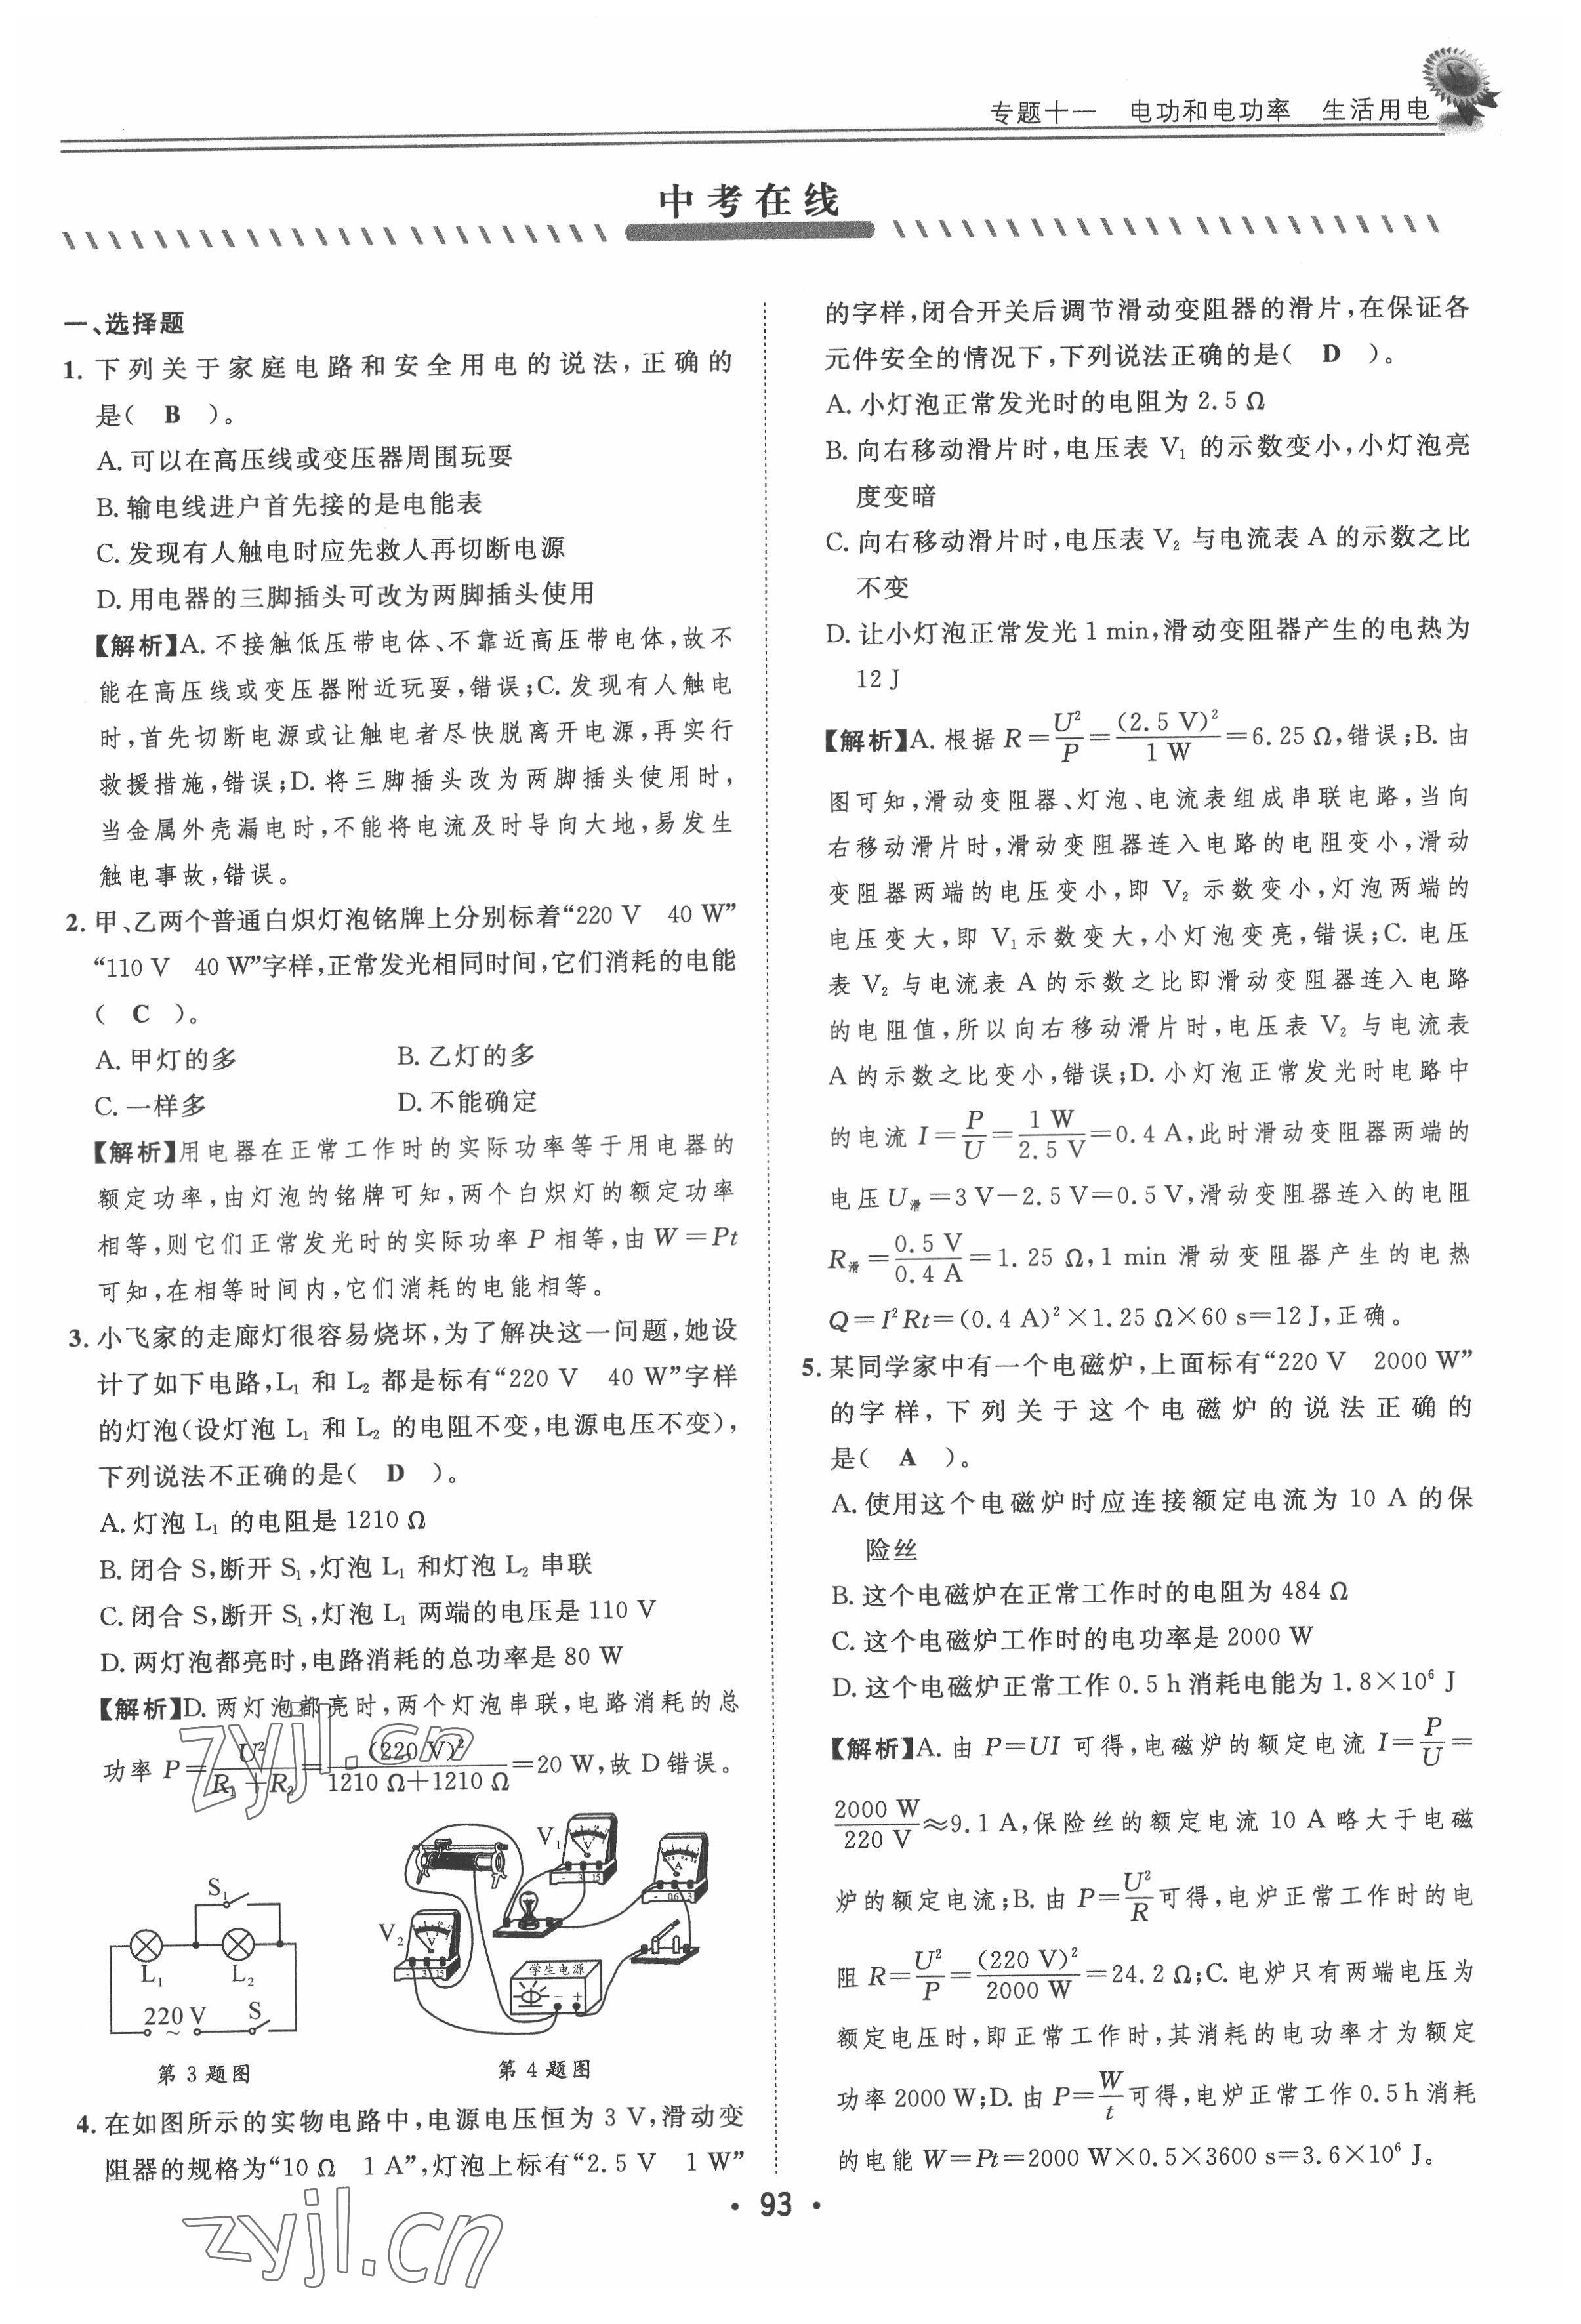 专题十一 电功和电功率 生活用电
中考在线
一、选择题
1. 下列关于家庭电路和安全用电的说法,正确的
是( B )。
A. 可以在高压线或变压器周围玩耍
B. 输电线进户首先接的是电能表
C. 发现有人触电时应先救人再切断电源
D. 用电器的三脚插头可改为两脚插头使用
【解析】A. 不接触低压带电体、不靠近高压带电体,故不
能在高压线或变压器附近玩耍,错误;C. 发现有人触电
时,首先切断电源或让触电者尽快脱离开电源,再实行
救援措施,错误;D. 将三脚插头改为两脚插头使用时,
当金属外壳漏电时,不能将电流及时导向大地,易发生
触电事故,错误。
2. 甲、乙两个普通白炽灯泡铭牌上分别标着“220 V 40 W”
“110 V 40 W”字样,正常发光相同时间,它们消耗的电能
( C )。
A. 甲灯的多 B. 乙灯的多
C. 一样多 D. 不能确定
【解析】用电器在正常工作时的实际功率等于用电器的
额定功率,由灯泡的铭牌可知,两个白炽灯的额定功率
相等,则它们正常发光时的实际功率 P 相等,由 W=Pt
可知,在相等时间内,它们消耗的电能相等。
3. 小飞家的走廊灯很容易烧坏,为了解决这一问题,她设
计了如下电路,L₁ 和 L₂ 都是标有“220 V 40 W”字样
的灯泡(设灯泡 L₁ 和 L₂ 的电阻不变,电源电压不变),
下列说法不正确的是( D )。
A. 灯泡 L₁ 的电阻是 1210 Ω
B. 闭合 S,断开 S₁,灯泡 L₁ 和灯泡 L₂ 串联
C. 闭合 S,断开 S₁,灯泡 L₁ 两端的电压是 110 V
D. 两灯泡都亮时,电路消耗的总功率是 80 W
【解析】D. 两灯泡都亮时,两个灯泡串联,电路消耗的总
功率 P=U²/(R₁+R₂)=(220 V)²/(1210 Ω+1210 Ω)=20 W,故 D 错误。
S₁
L₁ L₂
220 V S
~
第 3 题图
V₁
V
- 3 15
A
- 0.6 3
V₂
V
- 3 15
学生电源
- +
第 4 题图
4. 在如图所示的实物电路中,电源电压恒为 3 V,滑动变
阻器的规格为“10 Ω 1 A”,灯泡上标有“2.5 V 1 W”
的字样,闭合开关后调节滑动变阻器的滑片,在保证各
元件安全的情况下,下列说法正确的是( D )。
A. 小灯泡正常发光时的电阻为 2.5 Ω
B. 向右移动滑片时,电压表 V₁ 的示数变小,小灯泡亮
度变暗
C. 向右移动滑片时,电压表 V₂ 与电流表 A 的示数之比
不变
D. 让小灯泡正常发光 1 min,滑动变阻器产生的电热为
12 J
【解析】A. 根据 R=U²/P=(2.5 V)²/1 W=6.25 Ω,错误;B. 由
图可知,滑动变阻器、灯泡、电流表组成串联电路,当向
右移动滑片时,滑动变阻器连入电路的电阻变小,滑动
变阻器两端的电压变小,即 V₂ 示数变小,灯泡两端的
电压变大,即 V₁示数变大,小灯泡变亮,错误;C. 电压
表 V₂ 与电流表 A 的示数之比即滑动变阻器连入电路
的电阻值,所以向右移动滑片时,电压表 V₂ 与电流表
A 的示数之比变小,错误;D. 小灯泡正常发光时电路中
的电流 I=P/U=1 W/2.5 V=0.4 A,此时滑动变阻器两端的
电压U滑=3 V-2.5 V=0.5 V,滑动变阻器连入的电阻
R滑=0.5 V/0.4 A=1.25 Ω,1 min 滑动变阻器产生的电热
Q=I²Rt=(0.4 A)²×1.25 Ω×60 s=12 J,正确。
5. 某同学家中有一个电磁炉,上面标有“220 V 2000 W”
的字样,下列关于这个电磁炉的说法正确的
是( A )。
A. 使用这个电磁炉时应连接额定电流为 10 A 的保
险丝
B. 这个电磁炉在正常工作时的电阻为 484 Ω
C. 这个电磁炉工作时的电功率是 2000 W
D. 这个电磁炉正常工作 0.5 h 消耗电能为 1.8×10⁶ J
【解析】A. 由 P=UI 可得,电磁炉的额定电流 I=P/U=
2000 W/220 V≈9.1 A,保险丝的额定电流 10 A 略大于电磁
炉的额定电流;B. 由 P=U²/R可得,电炉正常工作时的电
阻 R=U²/P=(220 V)²/2000 W=24.2 Ω;C. 电炉只有两端电压为
额定电压时,即正常工作时,其消耗的电功率才为额定
功率 2000 W;D. 由 P=W/t可得,电炉正常工作 0.5 h 消耗
的电能 W=Pt=2000 W×0.5×3600 s=3.6×10⁶ J。
· 93 ·
zyjl.cn
zyjl.cn